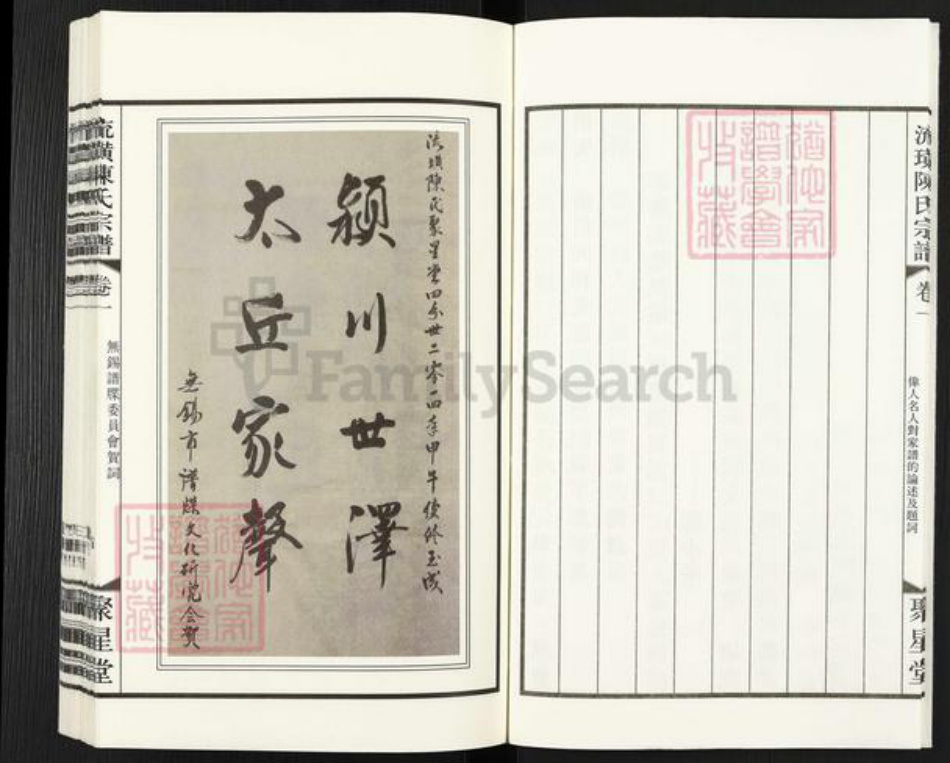 流璜陳氏宗譜
卷一
偉人名人對家譜的論述及題詞
聚星堂
譜學會
收藏
流璜陳氏聚星堂四分世二零一四年甲午續修玉成
潁川世澤
太丘家聲
無錫市譜牒文化研究會賀
流璜陳氏宗譜
卷一
無錫譜牒委員會賀詞
聚星堂
譜學會
收藏
FamilySearch